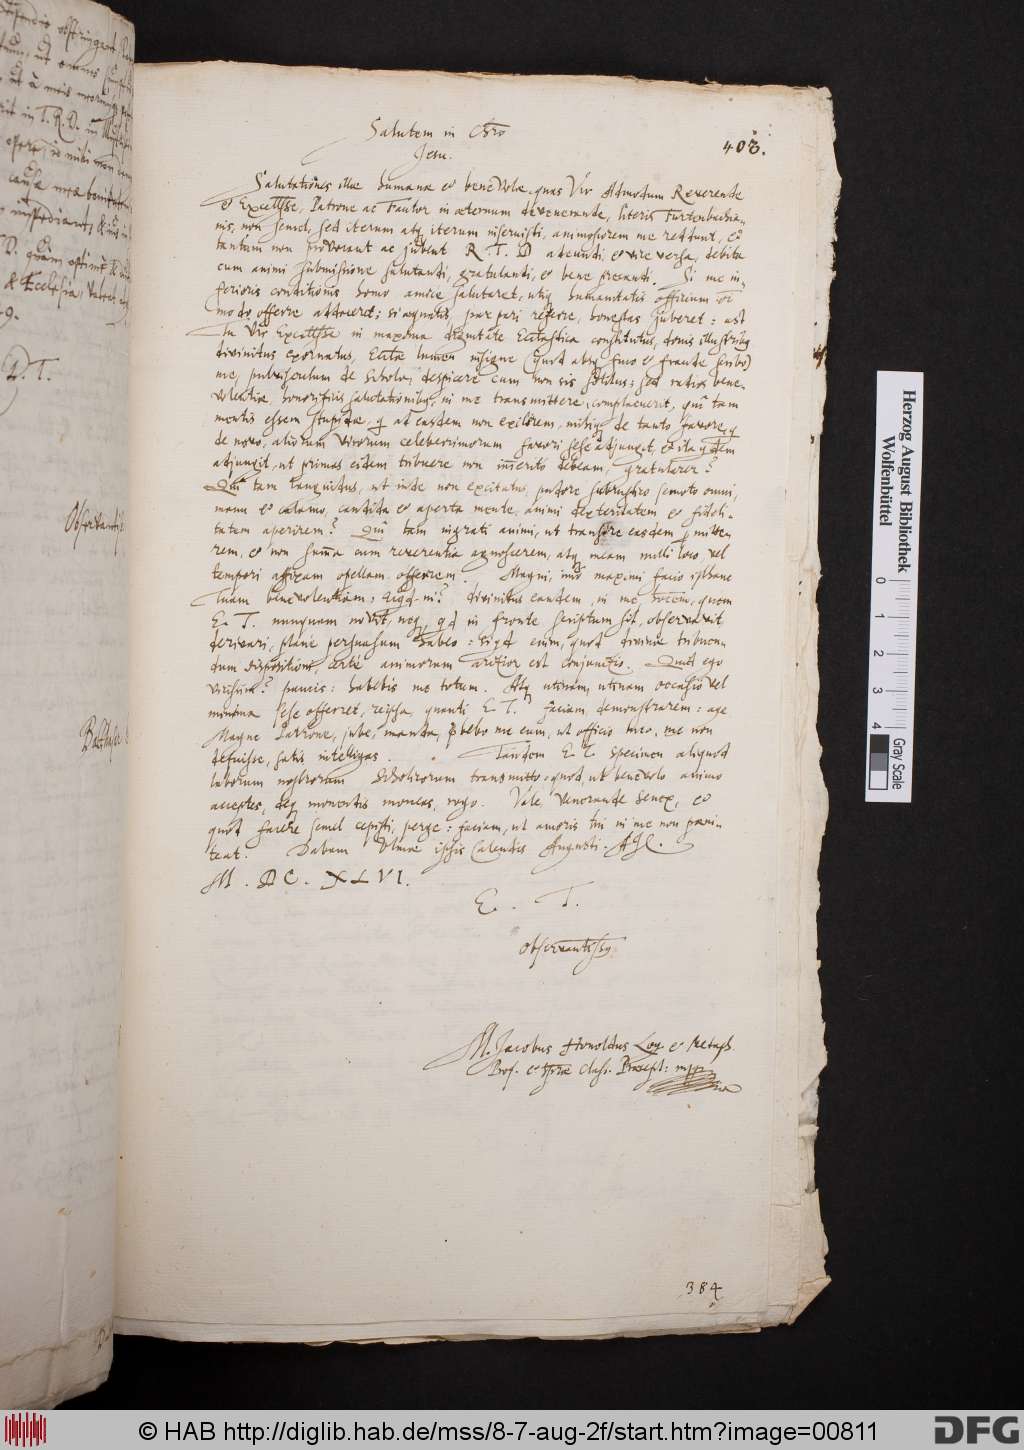 Salutem in Chro
Jesu.
403.
Salutationes illae humanae et beneVolae, quas Vir Admodum Reverende
et Excellsse, Patrone ac Fautor in aeternum devenerande, literis Furtenbachia-
nis, non semel, sed iterum atq iterum inseruisti, animosiorem me reddunt, et
tantum non provocant ac jubent R. T. D adeundi, et vice versa, debita
cum animi submissione salutandi, gratulandi, et bene precandi. Si me in-
ferioris conditionis homo amice salutaret, utiq humanitatis officium
modo offerre addoceret: si aequalis, par pari referre, honestas juberet: ast
Tu Vir Excellsse in maxima dignitate Eccltastica constitutus, donis illustribq
divinitus exornatus, Ecclae lumen insigne (quod absq fuco et fraude scribo)
me, pulvisculum de schola, despicere cum non sis solitus: sed radios bene-
volentiae, honorificis salutationibq, in me transmittere, complacuerit, qui tam
mentis essem stupidae, q ad easdem non exilirem, mihiq de tanto favore, q
de novo, aliorum Virorum celeberrimorum favori sese adjungit, et ita qdem
adjungit, ut primas eidem tribuere non immerito debeam, gratularer?
Qui tam languidus, ut inde non excitatus, pudore subrustico semoto omni,
manu et calamo, candida et aperta mente, animi dexteritatem et fideli-
tatem aperirem? Qui tam ingrati animi, ut transire easdem mitte-
rem, et non summa cum reverentia agnoscerem, atq meam nulli loco, vel
tempori affixam opellam offerrem. Magni, imo maximi facio isthanc
Tuam benevolentiam: divinitus eandem, in me hominem, quem
E. T. nunquam novit, neq, qd in fronte scriptum sit, observavit
derivari, plane persuasum habeo: siqd enim, quod divinae tribuen-
dum dispositioni, certe animorum arctior est conjunctio. Quid ego
vicissim? paucis: habebis me totum. Atq utinam, utinam occasio vel
minima sese offerret, reipsa, quanti E. T. faciam, demonstrarem: age
Magne Patrone, jube, manda, phebo me eum, ut officio meo, me non
defuisse, satis intelligas. Tandem E. T. specimen aliquod
laborum nostrorum Scholicorum transmitto: quod, ut benevolo animo
acceptes, deq monendis moneas, rogo. Vale, Venerande Senex, et
quod facere semel cepisti, perge: faciam, ut amoris tui in me non poeni-
teat. Dabam Ulmae ipsis Calendis Augusti. A
M. DC. XLVI.
E. T.
observantissq
M. Jacobus Honoldus Log. et Metaph.
Prof. et class. Praecept: mpp
384
Observantis
D. T.
Herzog August Bibliothek
Wolfenbüttel
0 1 2 3 4
Gray Scale
© HAB http://diglib.hab.de/mss/8-7-aug-2f/start.htm?image=00811
DFG